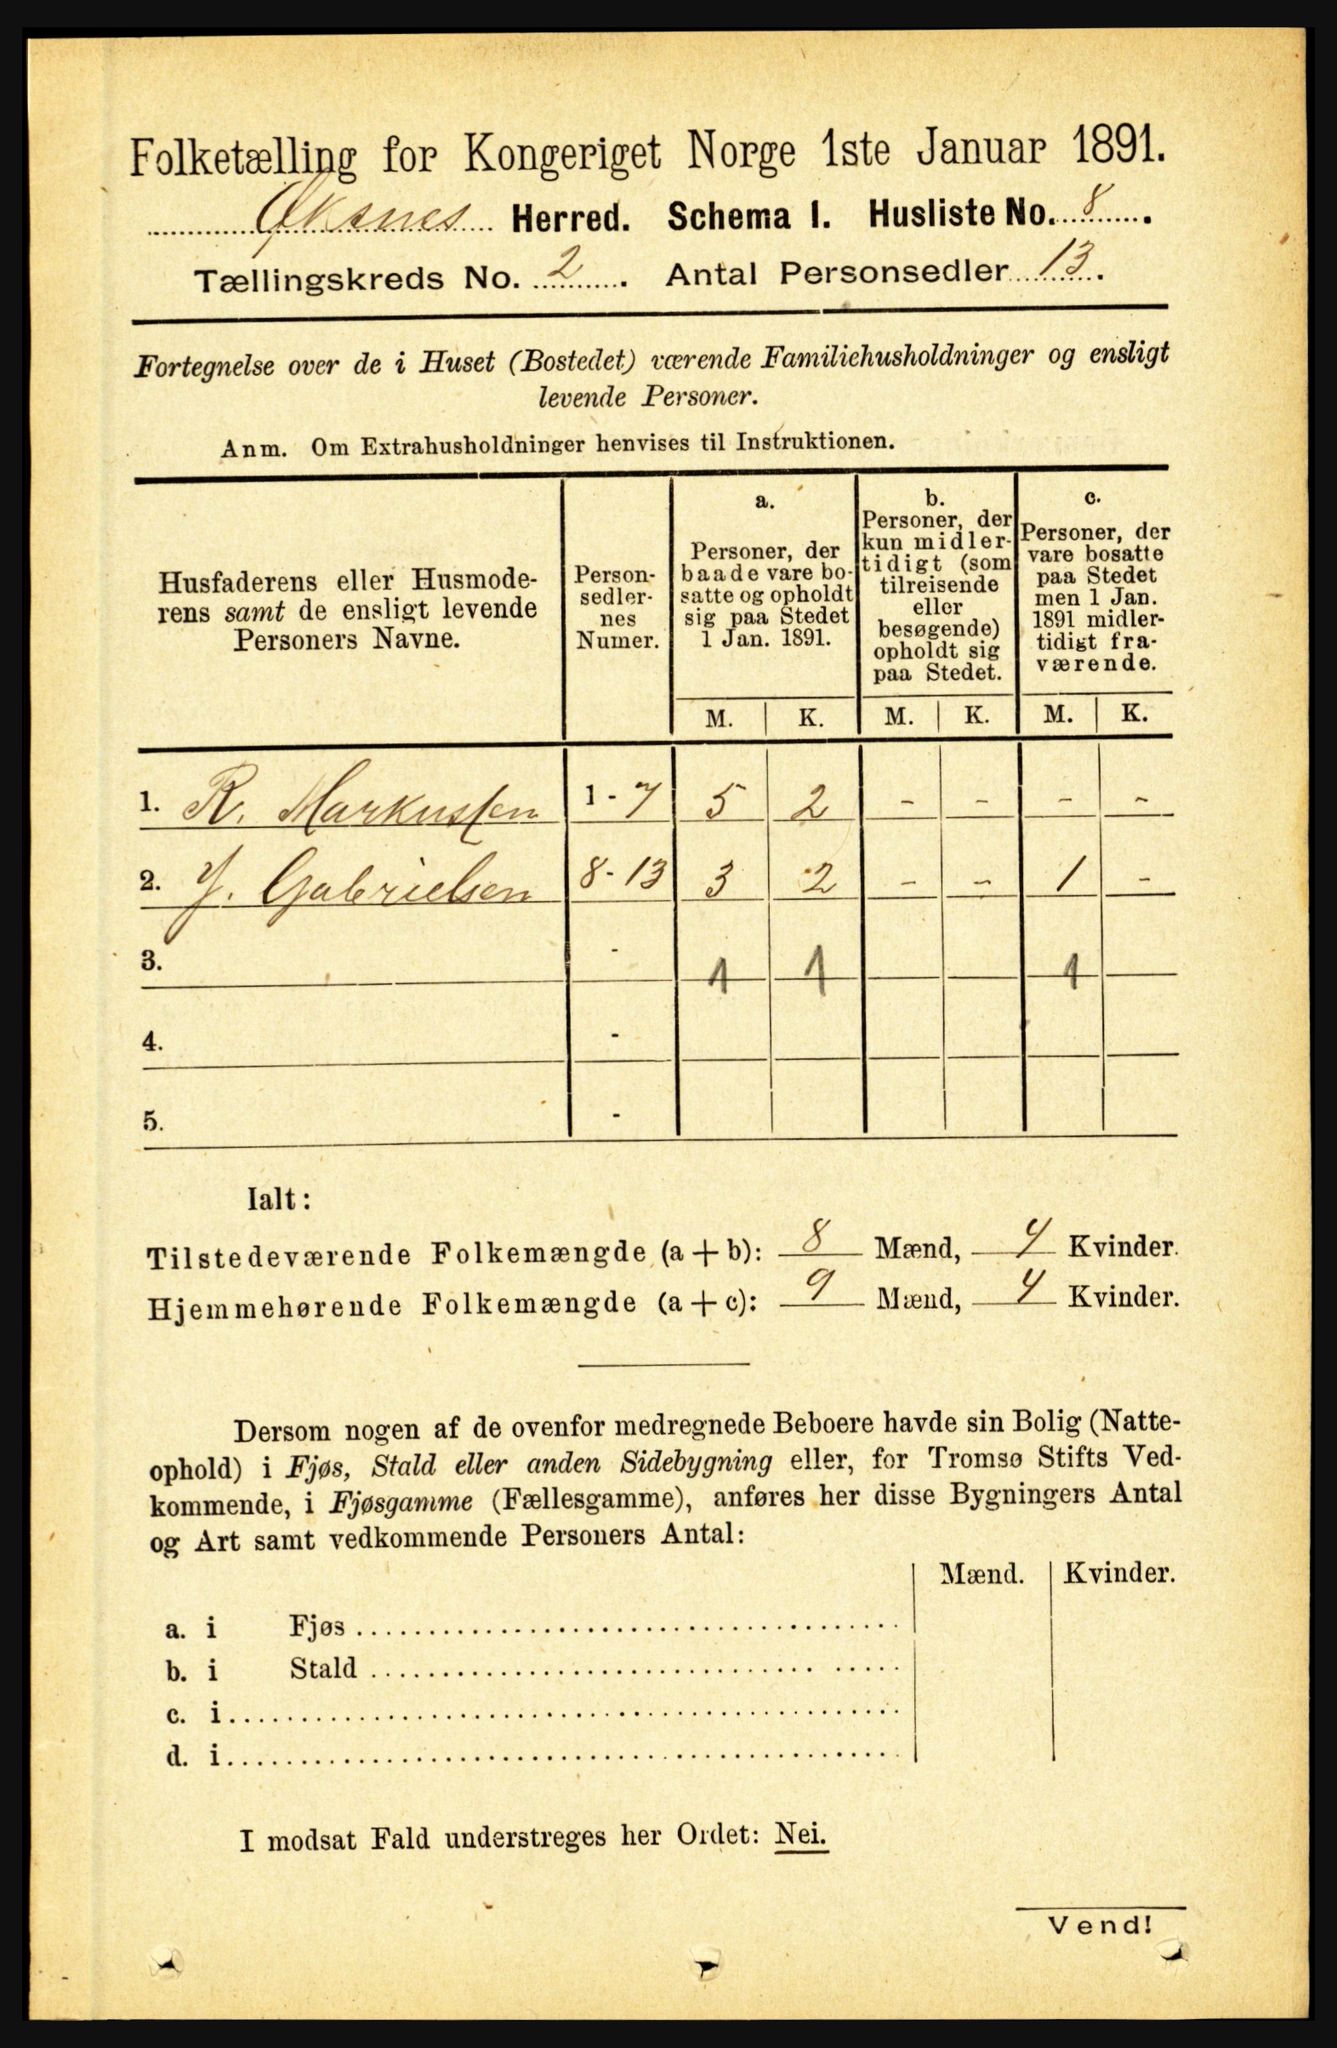 Folketælling for Kongeriget Norge 1ste Januar 1891.
Øksnes Herred. Schema 1. Husliste No. 8.
Tællingskreds No. 2. Antal Personsedler 13.
Fortegnelse over de i Huset (Bostedet) værende Familiehusholdninger og ensligt
levende Personer.
Anm. Om Extrahusholdninger henvises til Instruktionen.
Husfaderens eller Husmode-
rens samt de ensligt levende
Personers Navne.
Person-
sedler-
nes
Numer.
a.
Personer, der
baade vare bo-
satte og opholdt
sig paa Stedet
1 Jan. 1891.
b.
Personer, der
kun midler-
tidigt (som
tilreisende
eller
besøgende)
opholdt sig
paa Stedet.
c.
Personer, der
vare bosatte
paa Stedet
men 1 Jan.
1891 midler-
tidigt fra-
værende.
M. K. M. K. M. K.
1. R. Markussen 1-7 5 2 - - - -
2. J. Gabrielsen 8-13 3 2 - - 1 -
3. - 1 1 1
4. -
5. -
Ialt:
Tilstedeværende Folkemængde (a+b): 8 Mænd, 4 Kvinder.
Hjemmehørende Folkemængde (a+c): 9 Mænd, 4 Kvinder.
Dersom nogen af de ovenfor medregnede Beboere havde sin Bolig (Natte-
ophold) i Fjøs, Stald eller anden Sidebygning eller, for Tromsø Stifts Ved-
kommende, i Fjøsgamme (Fællesgamme), anføres her disse Bygningers Antal
og Art samt vedkommende Personers Antal:
Mænd. Kvinder.
a. i Fjøs
b. i Stald
c. i
d. i
I modsat Fald understreges her Ordet: Nei.
Vend!